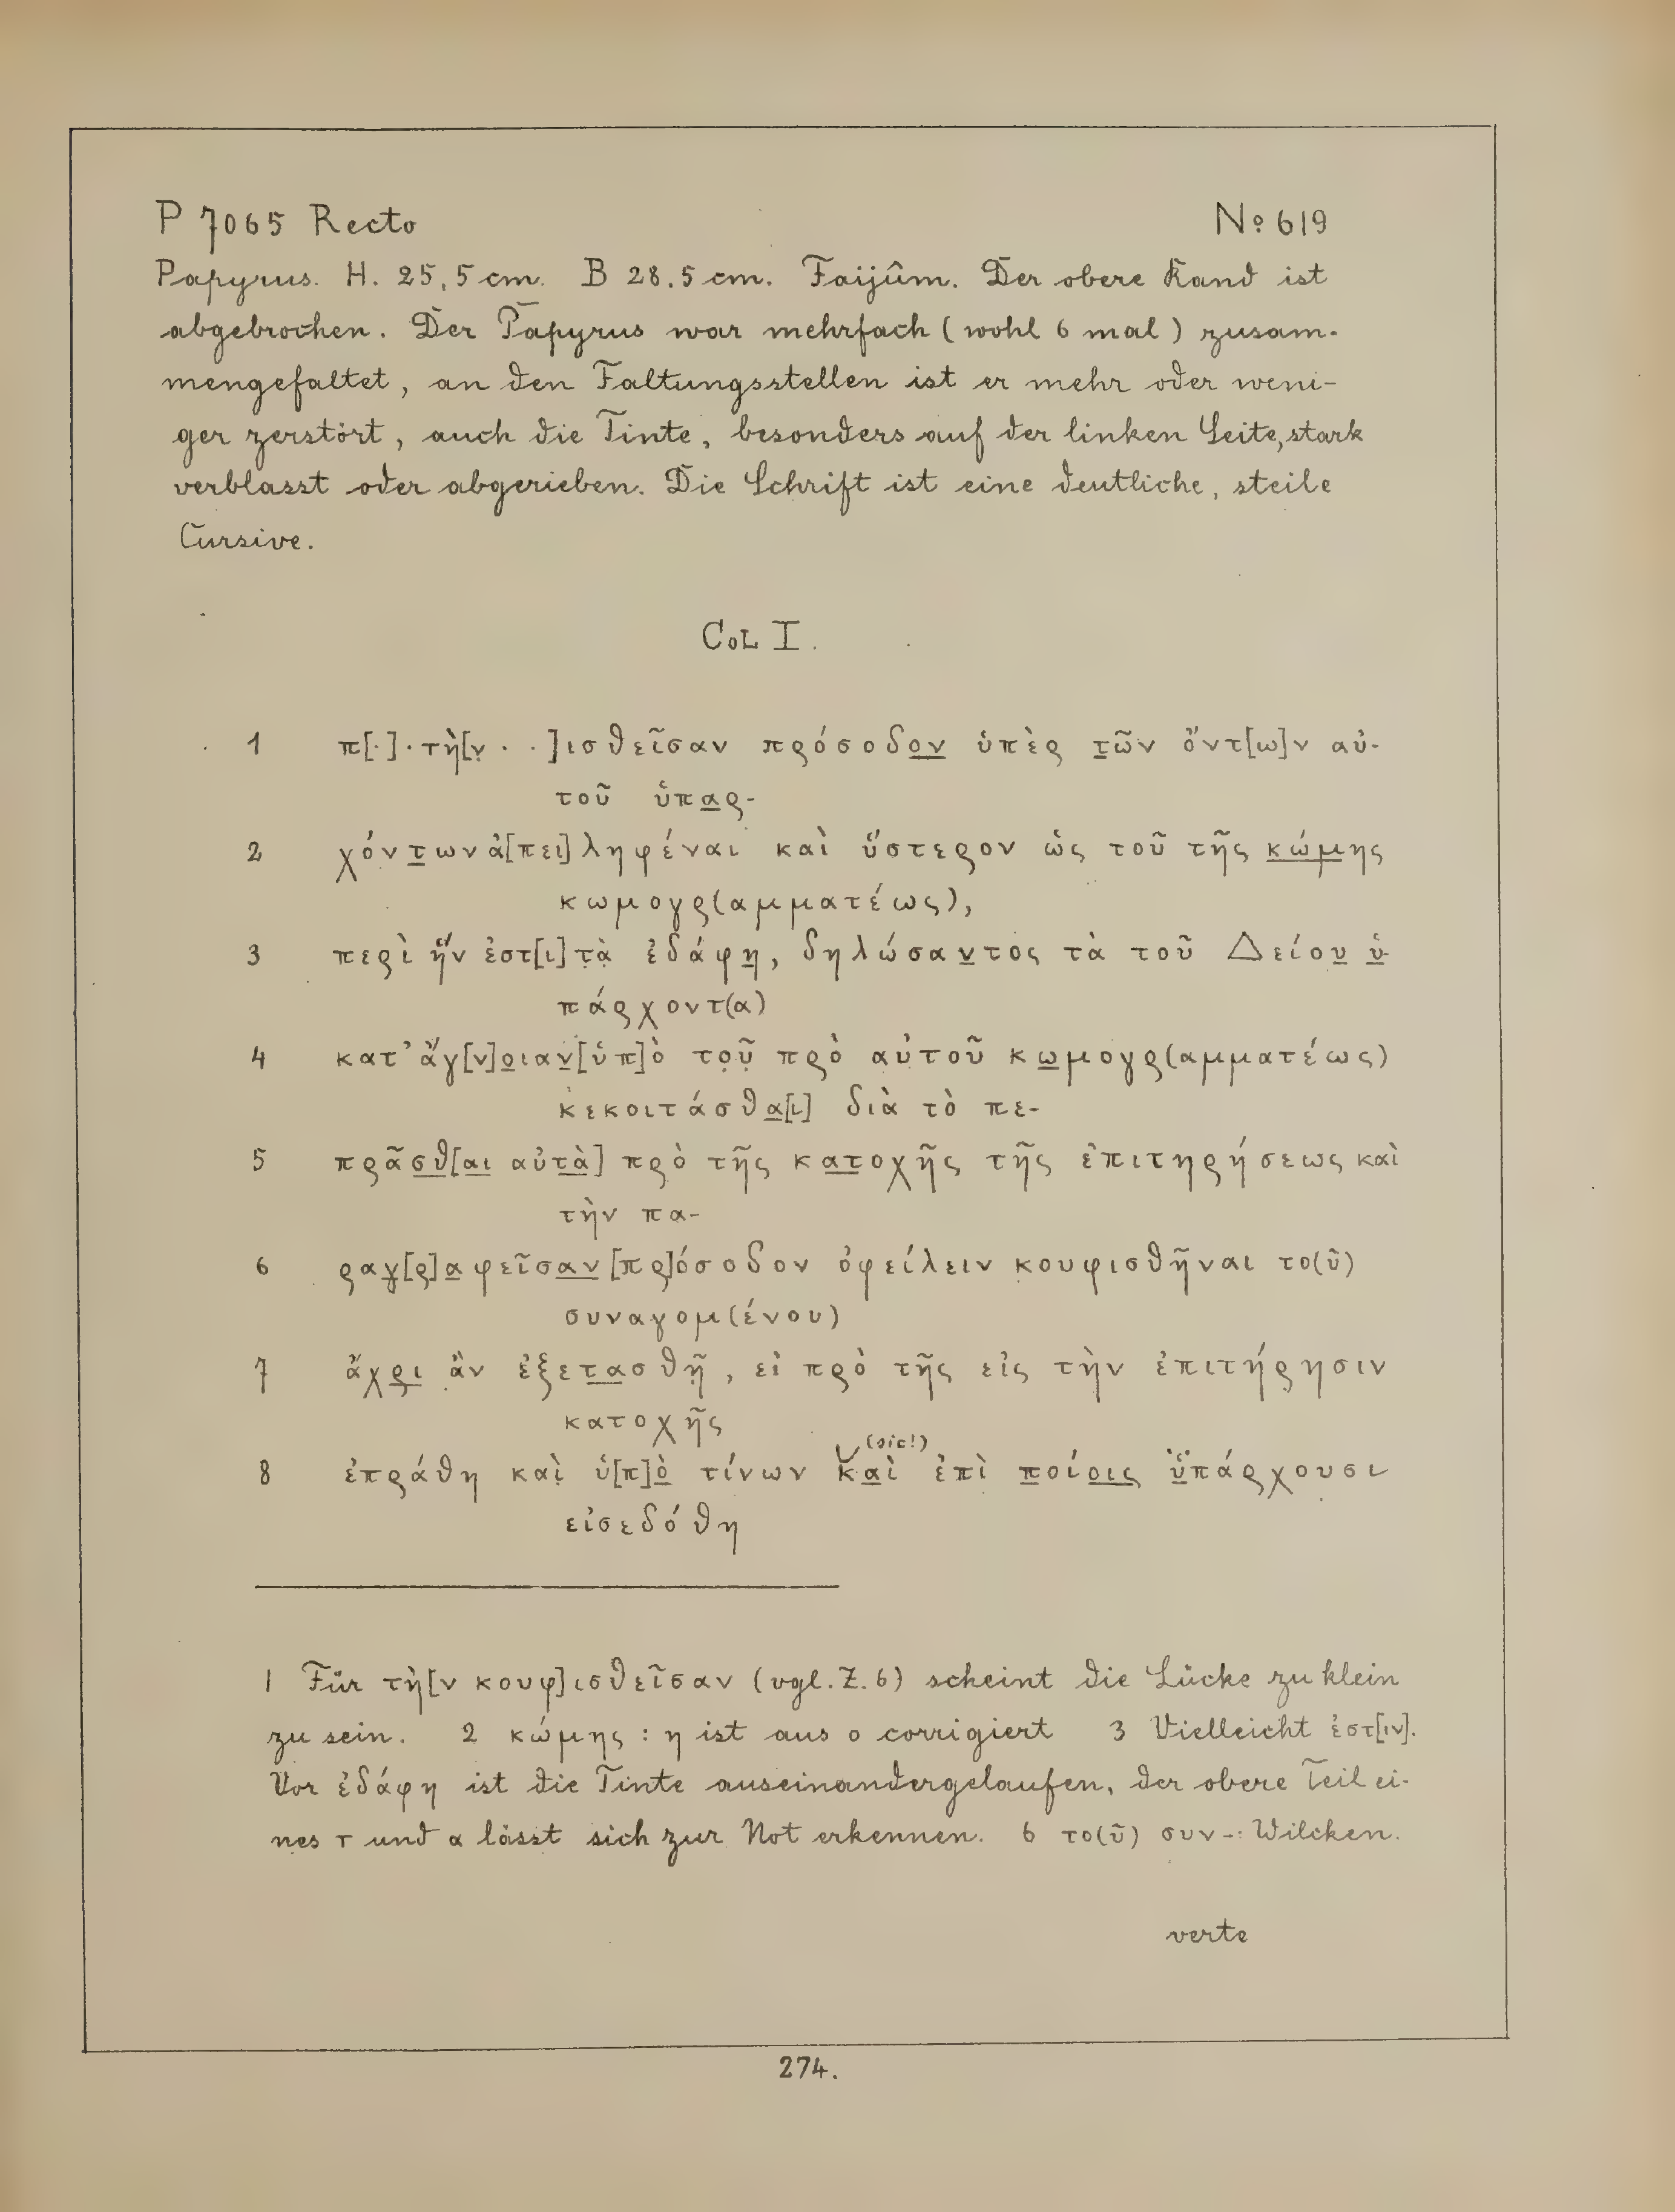 P 7065 Recto No 619
Papyrus. H. 25,5 cm. B 28.5 cm. Faijûm. Der obere Rand ist
abgebrochen. Der Papyrus war mehrfach (wohl 6 mal) zusam-
mengefaltet, an den Faltungsstellen ist er mehr oder weni-
ger zerstört, auch die Tinte, besonders auf der linken Seite, stark
verblasst oder abgerieben. Die Schrift ist eine deutliche, steile
Cursive.
COL I.
1 π[·]·τὴ[ν̣ · ·]ισθεῖσαν πρόσοδο̲ν̲ ὑπὲρ τ̲ῶν ὄντ[ω]ν αὐ-
τοῦ ὑπα̲ρ-
2 χόντ̲ων ἀ[πει]ληφέναι καὶ ὕστερον ὡς τοῦ τῆς κ̲ώ̲μ̲ης
κωμογρ(αμματέως),
3 περὶ ἥν ἐστ[ι] τ̣ὰ̣ ἐδάφη̲, δηλώσαν̲τος τὰ τοῦ Δείου̲ ὑ̲-
πάρχοντ(α)
4 κατ’ ἄγ[ν]ο̲ιαν̲ [ὑπ]ὸ το̣ῦ̣ πρὸ αὐτοῦ κω̲μογρ(αμματέως)
κεκοιτάσθα̲[ι] διὰ τὸ πε-
5 πρᾶσ̲θ̲[α̲ι̲ αὐτ̲ὰ̲] πρὸ τῆς κα̲τ̲οχῆς τῆς ἐπιτηρήσεως καὶ
τὴν πα-
6 ραγ̲[ρ]α̲φεῖσα̲ν̲ [πρ]όσοδον ὀφείλειν κουφισθῆναι το(ῦ)
συναγομ(ένου)
7 ἄχρ̲ι̲ ἂν ἐξετ̲α̲σθῇ, εἰ πρὸ τῆς εἰς τὴν ἐπιτήρησιν
κατοχῆς
(sic!)
8 ἐπράθη καὶ ὑ[π]ὸ̲ τίνων κα̲ὶ ἐπὶ π̲οίο̲ι̲ς̲ ὑ̲̈πάρχουσι
εἰσεδόθη
1 Für τὴ[ν κουφ]ισθεῖσαν (vgl. Z. 6) scheint die Lücke zu klein
zu sein. 2 κώμης : η ist aus ο corrigiert 3 Vielleicht ἐστ[ιν].
Vor ἐδάφη ist die Tinte auseinandergelaufen, der obere Teil ei-
nes τ und α lässt sich zur Not erkennen. 6 το(ῦ) συν-: Wilcken.
verte
274.